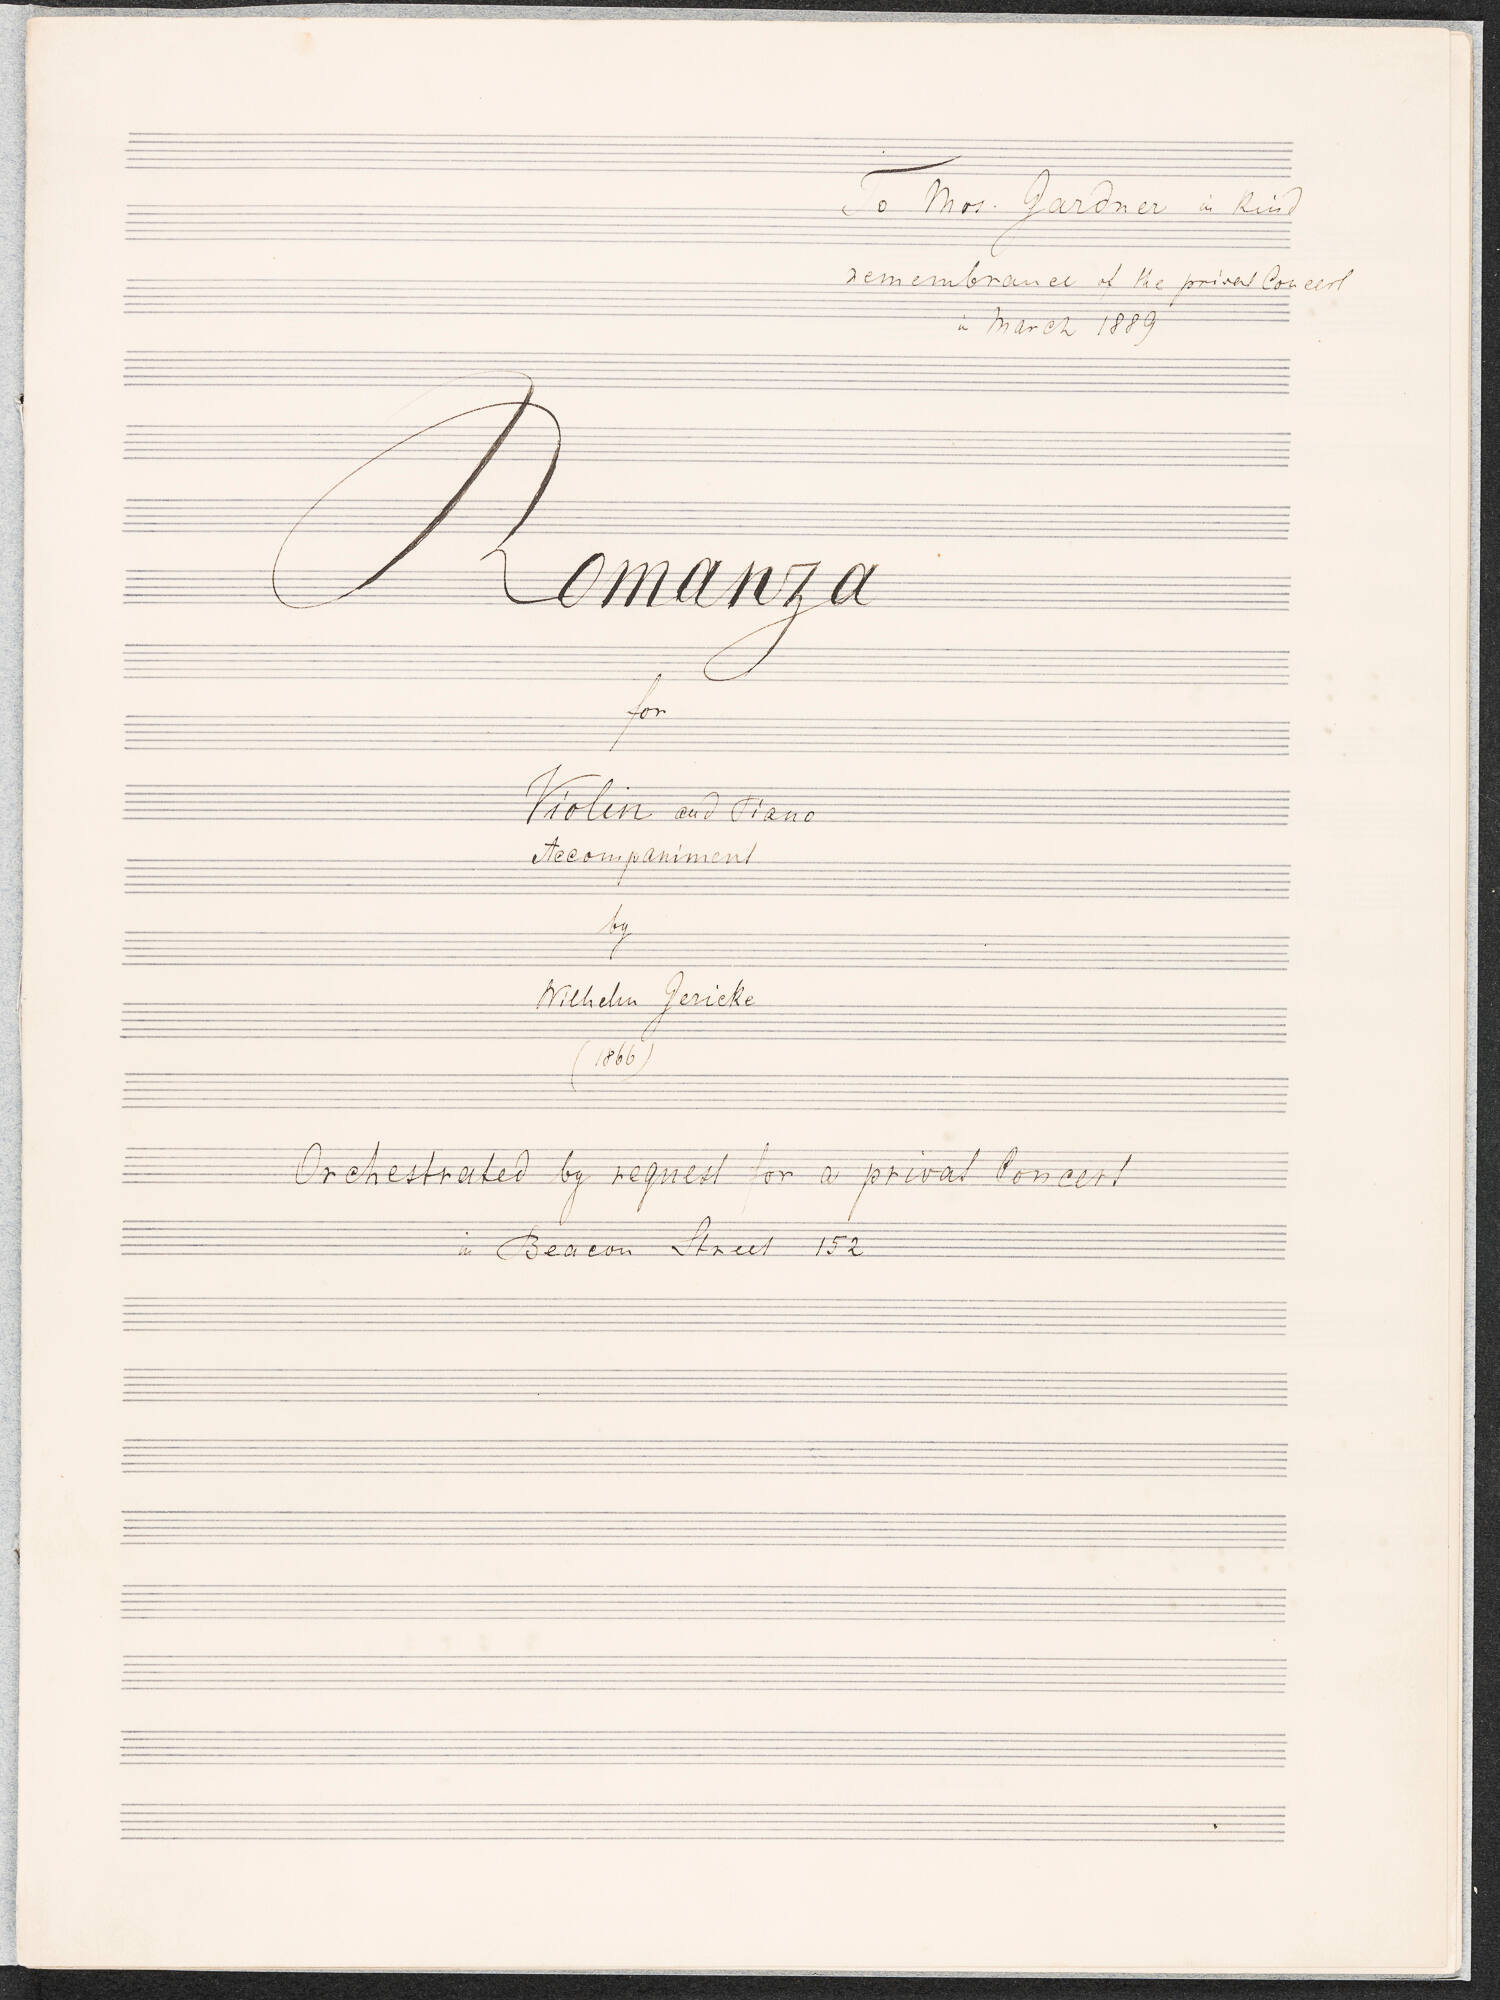 To Mrs. Gardner in kind
remembrance of the privat Concert
in March 1889
Romanza
for
Violin and Piano
Accompaniment
by
Wilhelm Gericke
(1866)
Orchestrated by request for a privat Concert
in Beacon Street 152